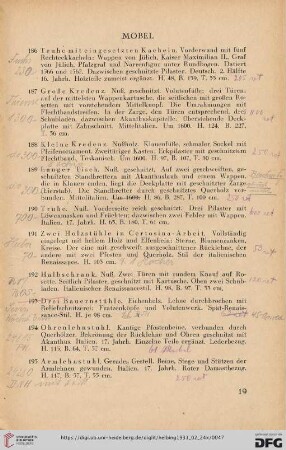 MÖBEL
186 Truhe mit eingesetzten Kacheln. Vorderwand mit fünf
Rechteckkacheln: Wappen von Jülich, Kaiser Maximilian II., Graf
von Jülich, Pfalzgraf und Narrenfigur unter Rundbogen. Datiert
1566 und 1567. Dazwischen geschnitzte Pilaster. Deutsch. 2. Hälfte
16. Jahrh. Holzteile zumeist ergänzt. H. 48, B. 159, T. 55 cm.
187 Große Kredenz. Nuß, geschnitzt. Volutenfüße; drei Türen,
auf der mittelsten Wappenkartusche, die seitlichen mit großen Ro-
setten mit vorstehendem Mittelknopf. Die Umrahmungen mit
Flechtbandstreifen. In der Zarge, den Türen entsprechend, drei
Schubladen, dazwischen Akanthuskonsole. Überstehende Deck-
platte mit Zahnschnitt. Mittelitalien. Um 1600. H. 124, B. 227,
T. 56 cm.
188 Kleine Kredenz. Nußholz. Klauenfüße, zehnder Sockel mit
Pfeifenornament. Zweitüriger Kasten. Eckpilaster mit geschnitztem
Flechtband. Toskanisch. Um 1600. H. 97, B. 107, T. 50 cm.
189 Langer Tisch. Nuß, geschnitzt. Auf zwei geschweiften, ge-
schnitzten Standbrettern mit Akanthuslaub und einem Wappen,
die in Klauen enden, liegt die Deckplatte mit geschnitzter Zarge
(Eierstab). Die Standbretter durch geschnitztes Querholz ver-
bunden. Mittelitalien. Um 1600. H. 86, B. 287, T. 80 cm.
190 Truhe. Nuß. Vorderseite reich geschnitzt. Drei Pilaster mit
Löwenmasken und Früchten; dazwischen zwei Felder mit Wappen.
Italien. 17. Jahrh. H. 65, B. 180, T. 61 cm.
191 Zwei Holzstühle in Certosina-Arbeit. Vollständig
eingelegt mit hellem Holz und Elfenbein: Sterne, Blumenranken,
Kreise. Der eine mit geschweift ausgeschnittener Rücklehne, der
andere mit zwei Pfosten und Querholz. Stil der italienischen
Renaissance. H. 105 cm.
192 Halbschrank. Nuß. Zwei Türen mit runden Knauf auf Ro-
sette. Seitlich Pilaster, geschnitzt mit Kartusche. Oben zwei Schub-
laden. Italienischer Renaissancestil. H. 98, B. 97, T. 53 cm.
193 Drei Bauernstühle. Eichenholz. Lehne durchbrochen mit
Reliefschnitzerei: Fratzenköpfe und Volutenwerk. Spät-Renais-
sance-Stil. H. je 98 cm.
194 Ohrenlehnstuhl. Kantige Pfostenbeine, verbunden durch
Querhölzer. Bekrönung der Rücklehne und Ohren geschnitzt mit
Akanthus. Italien. 17. Jahrh. Einzelne Teile ergänzt. Lederbezug.
H. 115, B. 64, T. 57 cm.
195 Armlehnstuhl. Geradn. Gestell. Beine, Stege und Stützen der
Armlehnen gewunden. Italien. 17. Jahrh. Roter Damastbezug.
H. 117, B. 57, T. 53 cm.
19
https://digi.ub.uni-heidelberg.de/diglit/helbing1931_02_24x/0047
UNIVERSITÄTS-
BIBLIOTHEK
HEIDELBERG
Gefördert durch
DFG